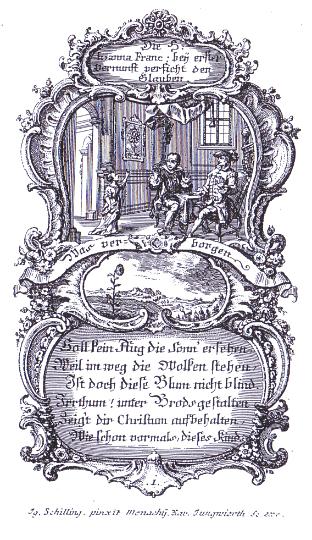 Die H.
Joanna Franc: bey erster
Vernunft versicht den
Glauben.
Was ver- borgen
Soll kein Aug die Sonn' ersehen
Weil im weg die Wolken stehen
Ist doch diese Blum nicht blind
Irrthum! unter Brodsgestalten
Zeigt dir Christum aufbehalten
Wie schon vormals, dieses Kind.
1.
Jg. Schilling pinxit Monachij. Xav. Jungwierth Sc. exc.